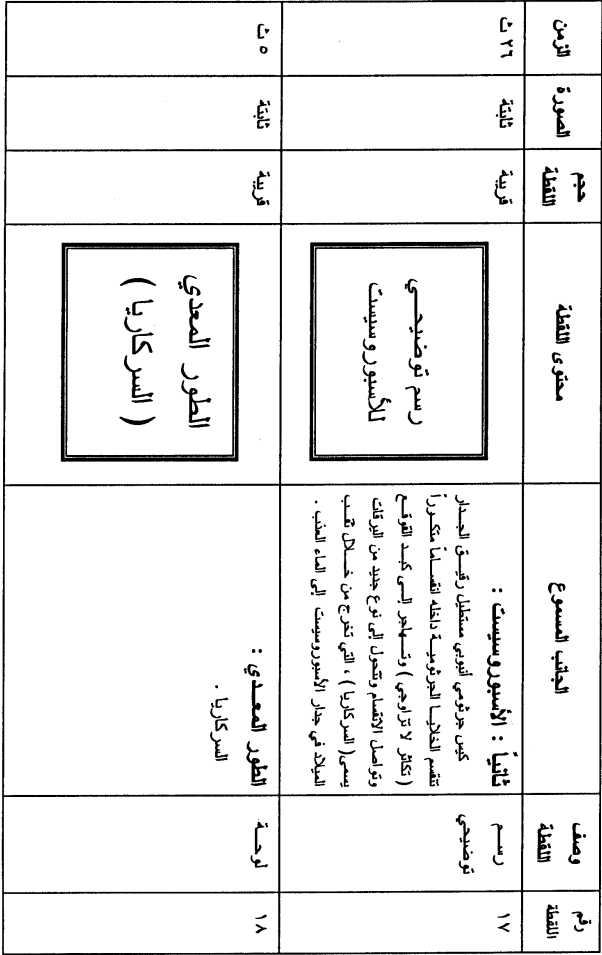 رقم اللقطة
وصف اللقطة
الجانب المسموع
محتوى اللقطة
حجم اللقطة
الصورة
الزمن
١٧
رســم
توضيحي
ثانياً : الأسبوروسيست :
كيس جرثومي أنبوبي مستطيل رقيــق الجــدار
تنقسم الخلايــا الجرثوميــة داخله انقســاماً متكــرراً
( تكاثر لا تزاوجي ) وتــهاجر إلــى كبــد القوقــع
وتواصل الانقسام وتتحول إلى نوع جديد من اليرقات
يسمى( السركاريا ) ، التي تخرج من خــلال ثقــب
الميلاد في جدار الأسبوروسيست إلى الماء العذب .
رسم توضيحــي
للأسبوروسيست
قريبة
ثابتة
٢٦ ث
١٨
لوحــة
الطور المعــدي :
السركاريا .
الطور المعدي
( السركاريا )
قريبة
ثابتة
٥ ث